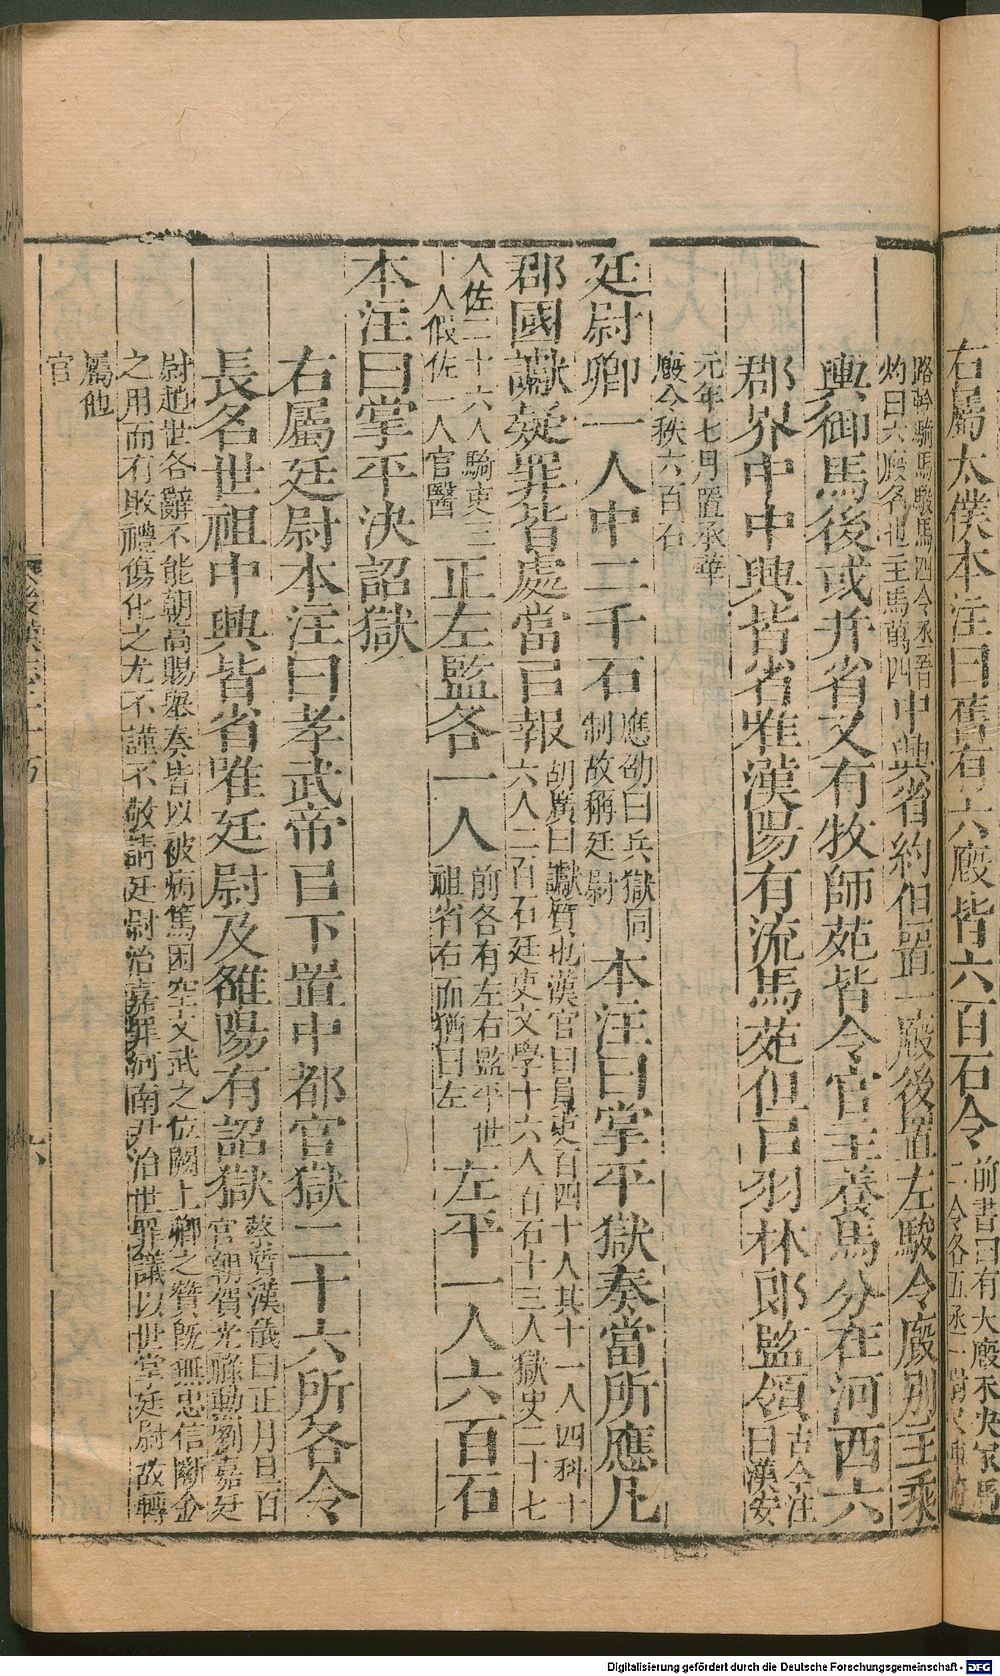 右屬太僕本注曰舊有六廄皆六百石令前書曰有大廄未央家馬
二令各五丞一尉
路軨騎馬駿馬四令丞皆
灼曰六廄名也主馬萬四
中興省約但置一廄後置左駿令廄別主乘
輿御馬後或并省又有牧師苑皆令官主養馬分在河西六
郡界中中興皆省唯漢陽有流馬苑但㠯羽林郎監領古今注
曰漢安
元年七月置承華
廄令秩六百石
廷尉卿一人中二千石應劭曰兵獄同
制故稱廷尉
本注曰掌平獄奏當所應凡
郡國讞疑罪皆處當㠯報胡廣曰讞質也漢官曰員吏百四十人其十一人四科十
六人二百石廷吏文學十六人百石十三人獄史二十七
人佐二十六人騎吏三
十人假佐一人官醫
正左監各一人前各有左右監平世
祖省右而猶曰左
左平一人六百石
本注曰掌平決詔獄
右屬廷尉本注曰孝武帝㠯下置中都官獄二十六所各令
長名世祖中興皆省唯廷尉及雒陽有詔獄蔡質漢儀曰正月旦百
官朝賀光祿勳劉嘉廷
尉趙世各辭不能朝高賜舉奏皆以被病篤困空文武之位闕上卿之贊既無忠信斷金
之用而有敗禮傷化之尤不謹不敬請廷尉治嘉罪河南尹治世罪議以世掌廷尉故轉
屬他
官
六
Digitalisierung gefördert durch die Deutsche Forschungsgemeinschaft - DFG